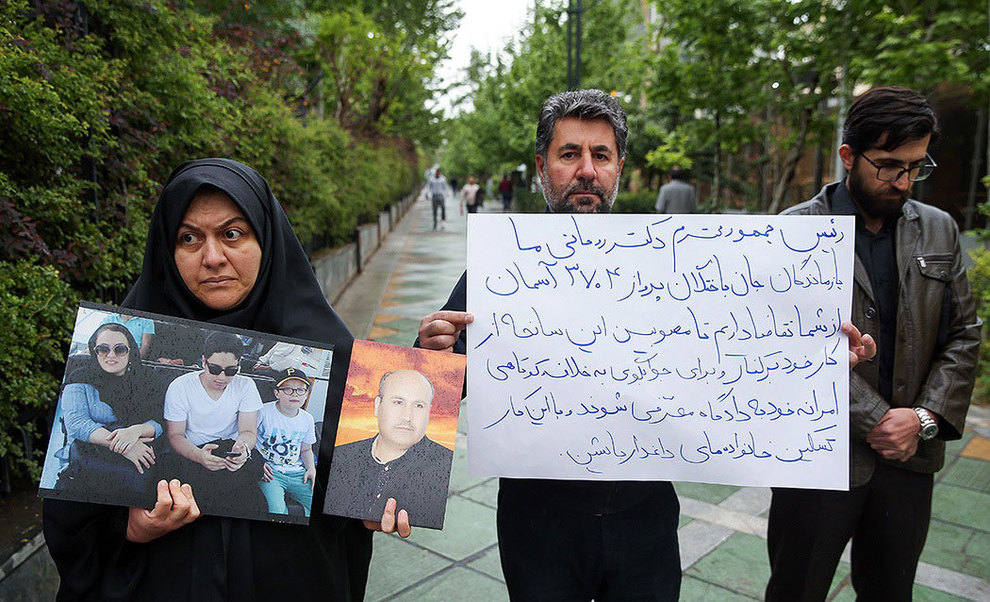 رئیس جمهور محترم دکتر روحانی ما
بازماندگان جان باختگان پرواز ۳۷۰۴ آسمان
از شما تقاضا داریم تا مصوبین این سانحه از
کار خود برکنار و برای جوابگوی به خلاف کوتاهی
امرانه خود به دادگاه معرفی شوند و با این کار
تسکین خانواده های داغدار باشین.